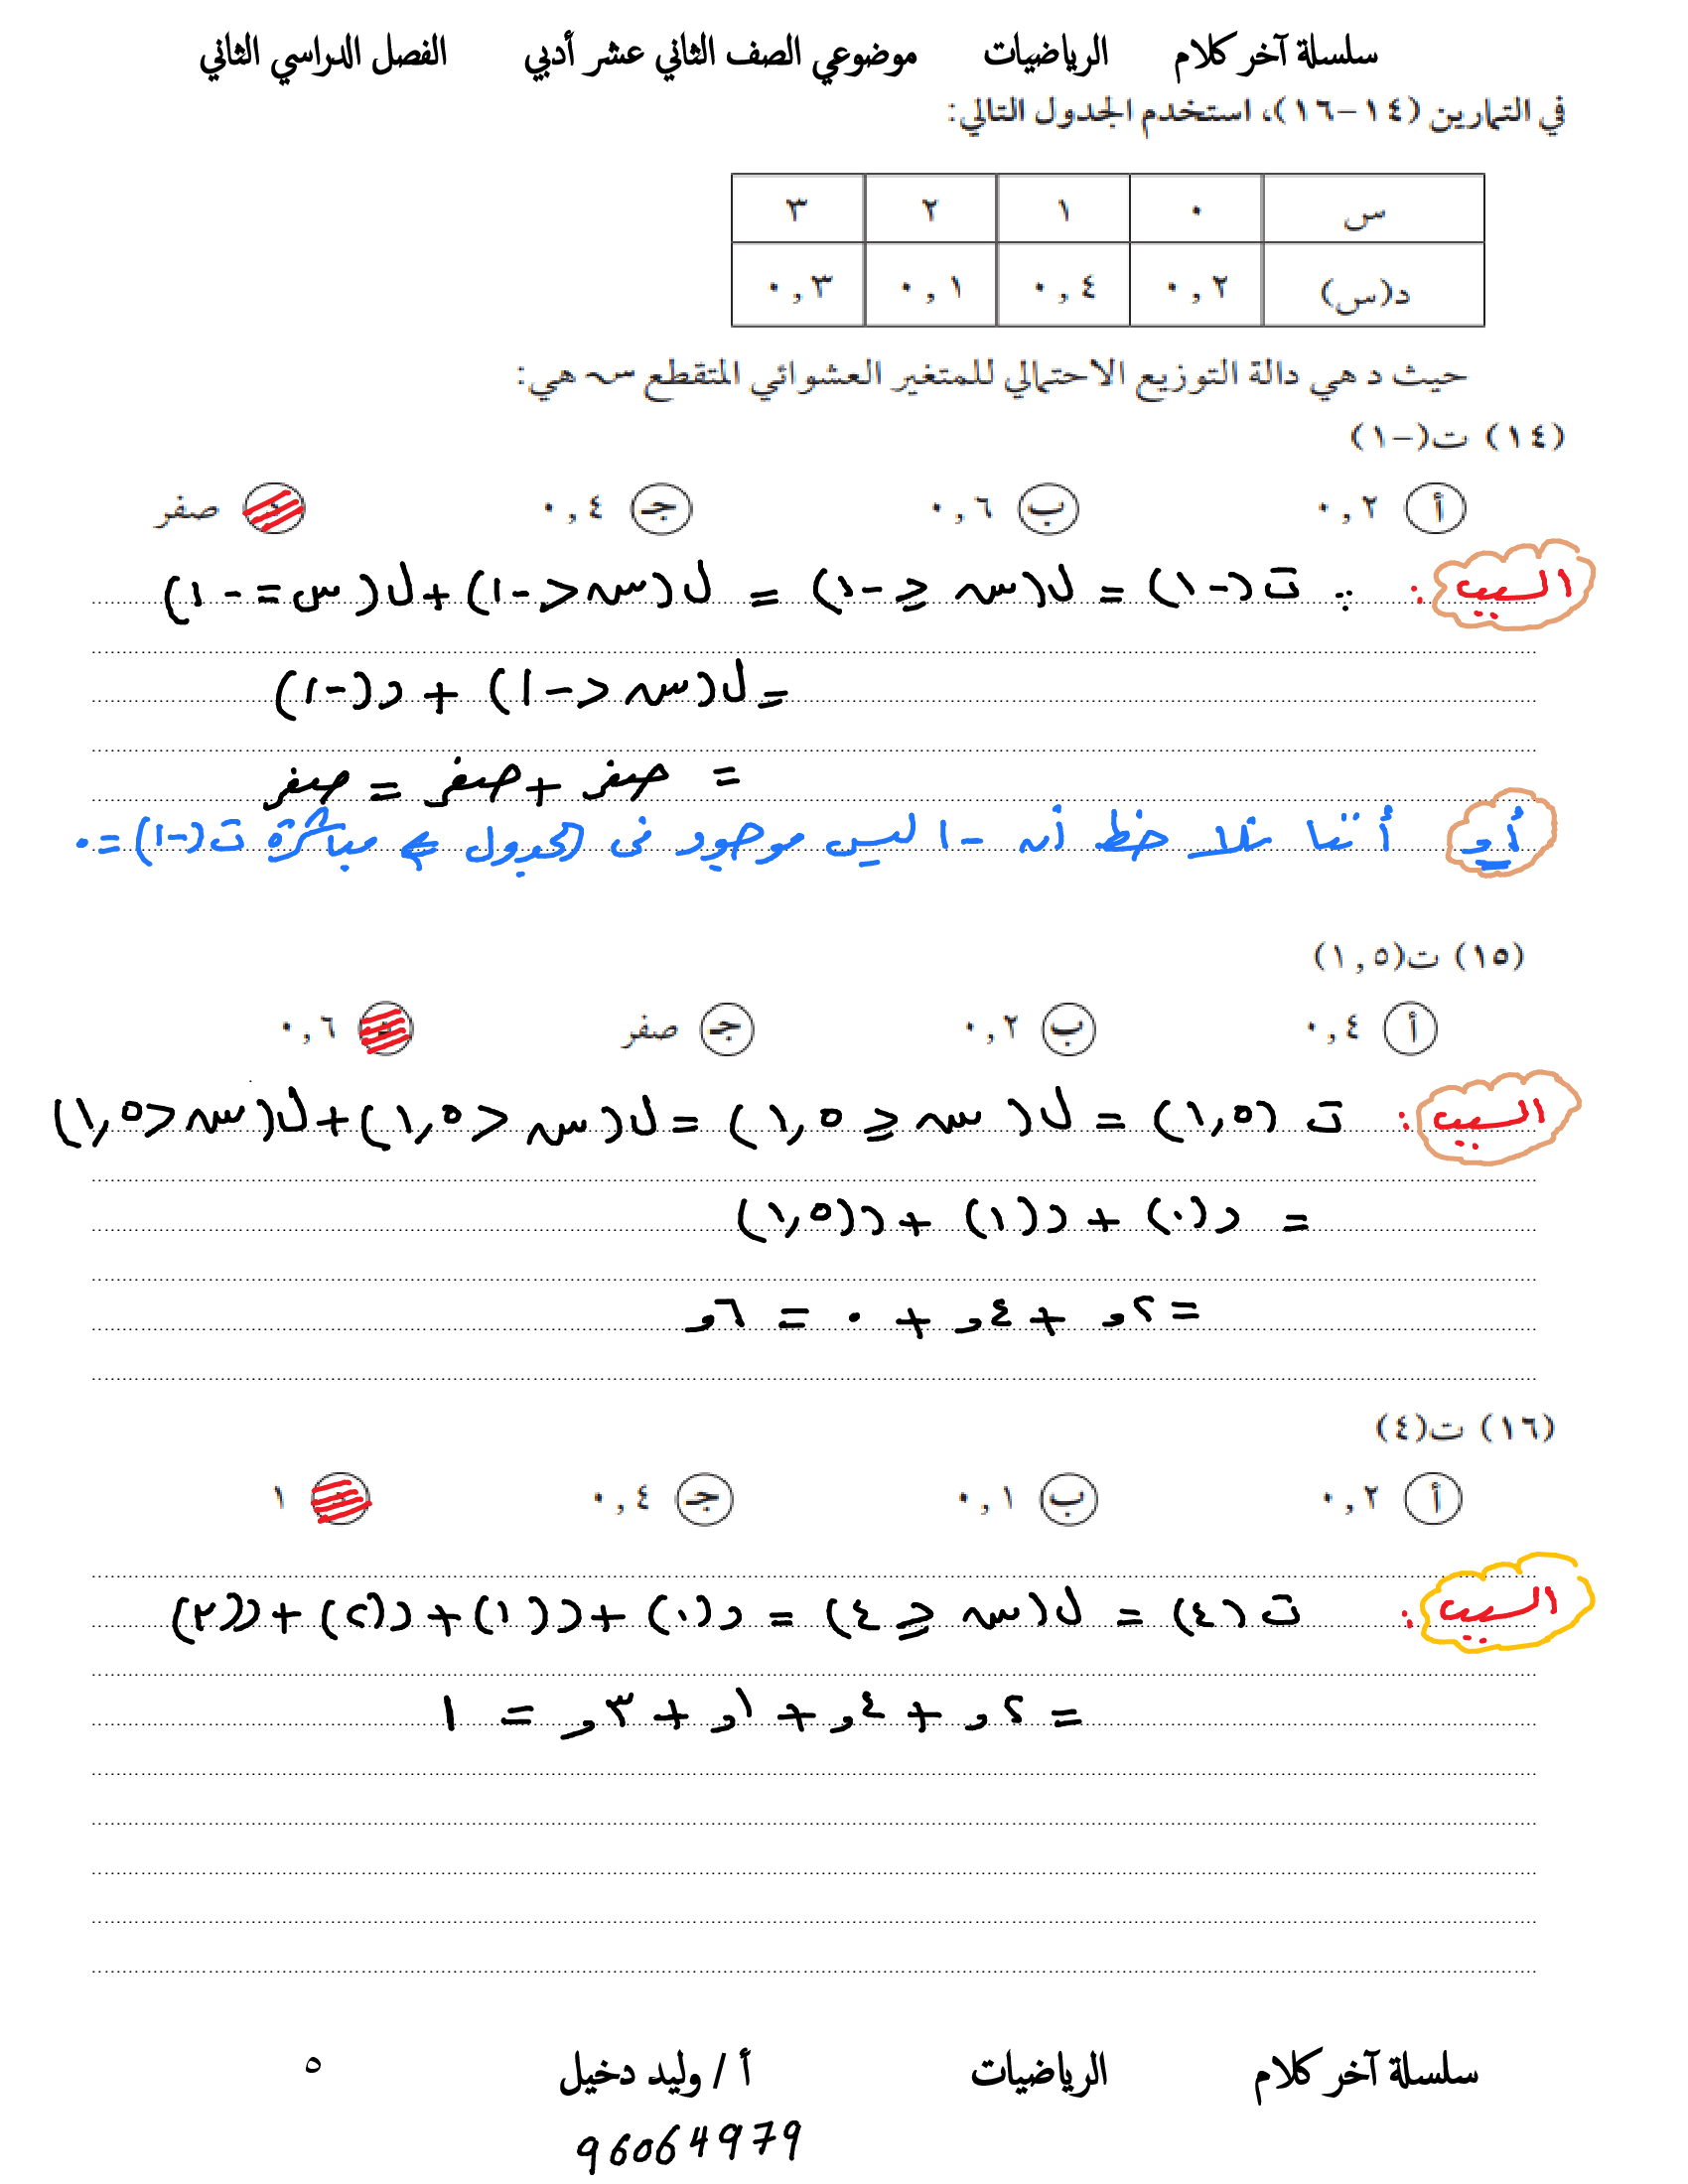 سلسلة آخر كلام الرياضيات موضوعي الصف الثاني عشر أدبي الفصل الدراسي الثاني
في التمارين (١٤-١٦)، استخدم الجدول التالي:
س ٠ ١ ٢ ٣
د(س) ٠,٢ ٠,٤ ٠,١ ٠,٣
حيث د هي دالة التوزيع الاحتمالي للمتغير العشوائي المتقطع سـ هي:
(١٤) ت(-١)
أ ٠,٢ ب ٠,٦ جـ ٠,٤ صفر
السبب : ∵ ت(-١) = ل(سـ ≤ -١) = ل(سـ < -١) + ل(س = -١)
= ل(سـ < -١) + د(-١)
= صفر + صفر = صفر
أو أننا نلاحظ أن -١ ليس موجود في الجدول ⇐ مباشرة ت(-١) = ٠
(١٥) ت(١,٥)
أ ٠,٤ ب ٠,٢ جـ صفر د ٠,٦
السبب : ت (١,٥) = ل(سـ ≤ ١,٥) = ل(سـ < ١,٥) + ل(سـ < ١,٥)
= د(٠) + د(١) + د(١,٥)
= ٢, + ٤, + ٠ = ٦,
(١٦) ت(٤)
أ ٠,٢ ب ٠,١ جـ ٠,٤ د ١
السبب : ت (٤) = ل(سـ ≤ ٤) = د(٠) + د(١) + د(٢) + د(٣)
= ٢, + ٤, + ١, + ٣, = ١
سلسلة آخر كلام الرياضيات أ / وليد دخيل ٥
96064979